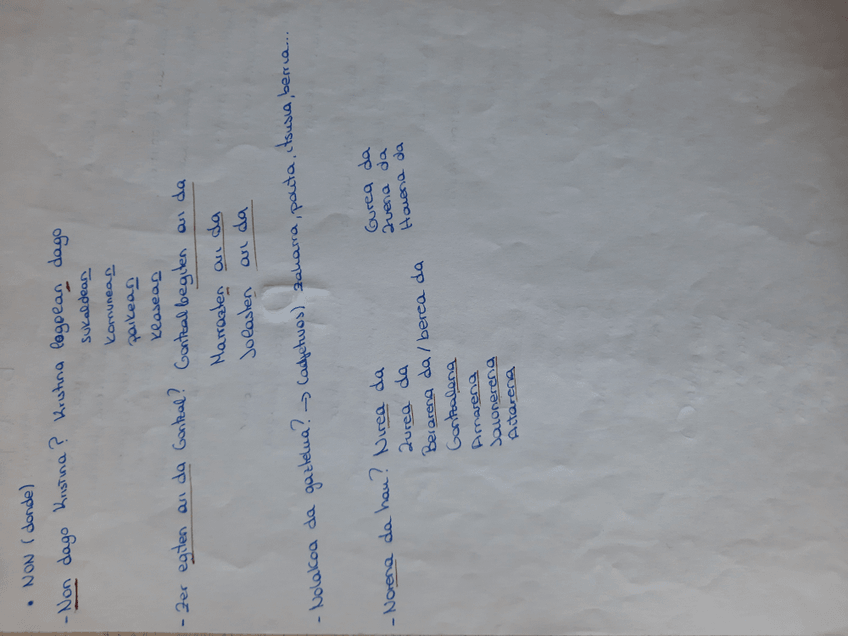 • NON (donde)
- Non dago Kristina? Kristina logelan dago
sukaldean
komunean
parkean
klasean
- Zer egiten ari da Gontzal? Gontzal hegiten ari da
Marrazten ari da
Jolasten ari da
- Nolakoa da gaztelua? → (adjetivos) zaharra, polita, itsusia, berria...
- Norena da hau? Nirea da Gurea da
Zurea da Zuena da
Berarena da / berea da Haiena da
Gontzalena
Amarena
Jaionerena
Aitarena